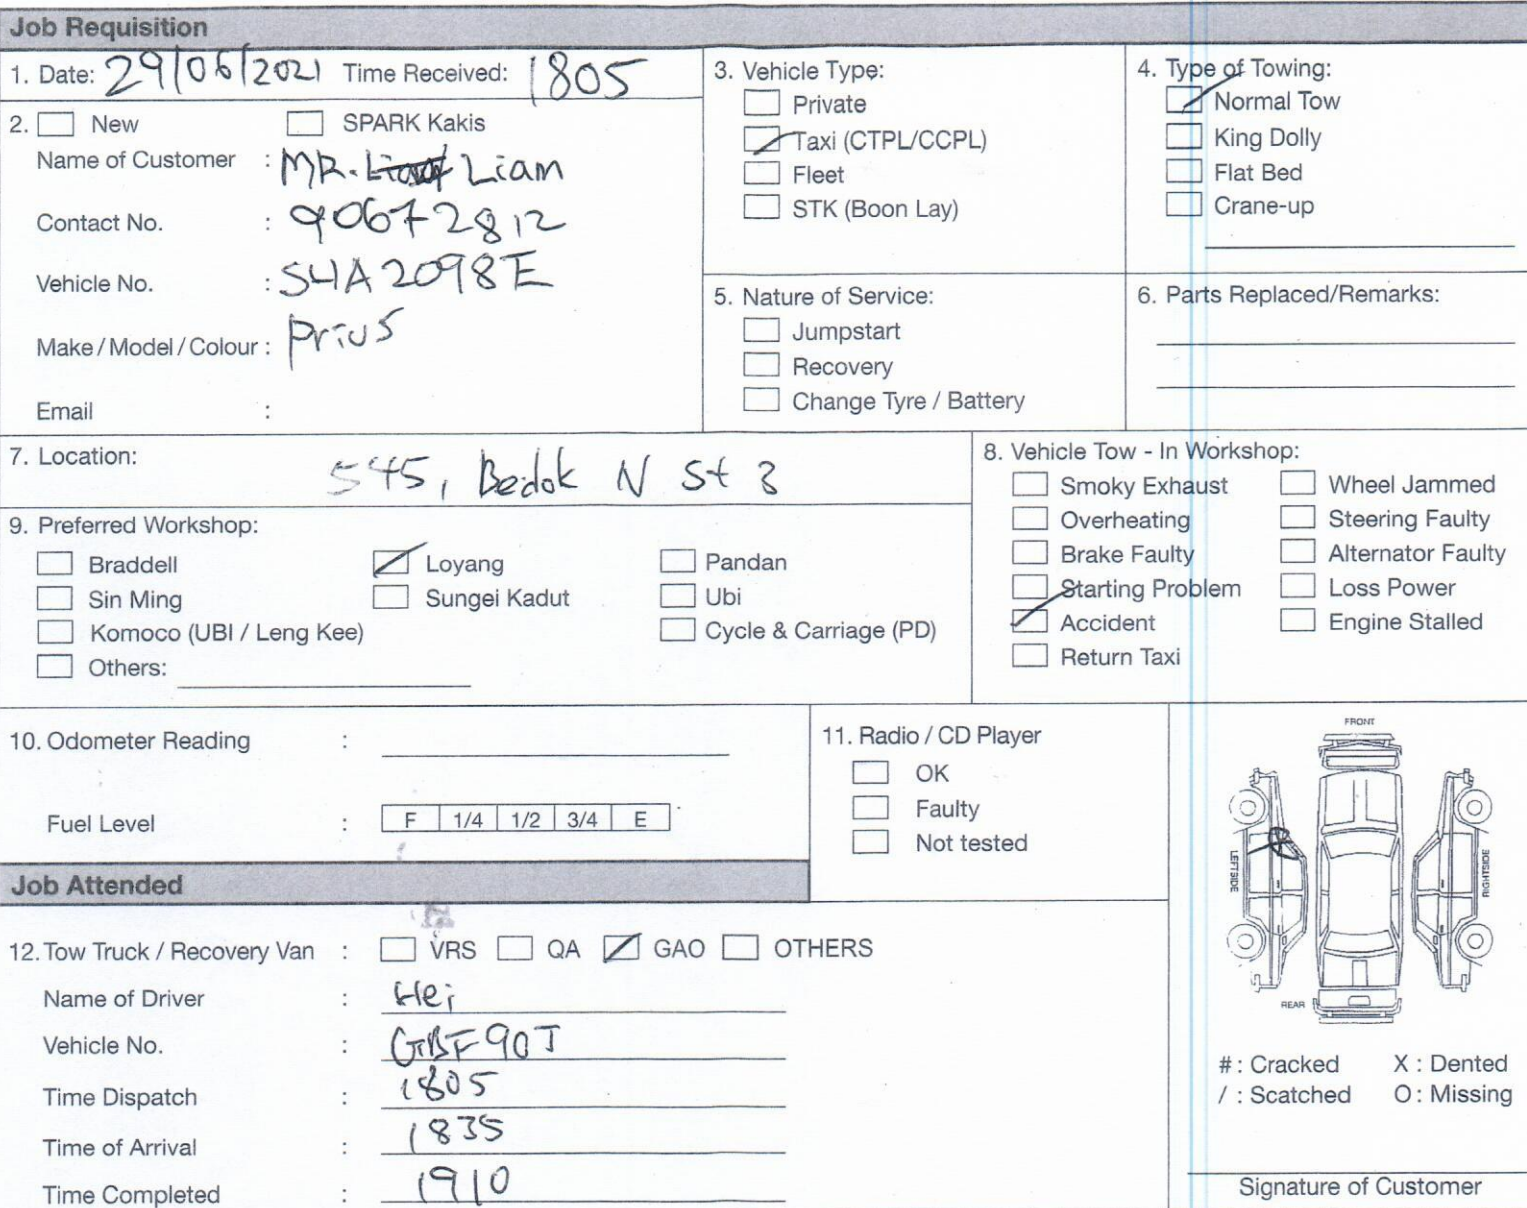 Job Requisition
1. Date: 29/06/2021 Time Received: 1805
2. New SPARK Kakis
Name of Customer : MR. Liam
Contact No. : 90672812
Vehicle No. : SHA2098E
Make / Model / Colour : Prius
Email :
3. Vehicle Type:
Private
Taxi (CTPL/CCPL)
Fleet
STK (Boon Lay)
4. Type of Towing:
Normal Tow
King Dolly
Flat Bed
Crane-up
5. Nature of Service:
Jumpstart
Recovery
Change Tyre / Battery
6. Parts Replaced/Remarks:
7. Location:
545, Bedok N St 3
8. Vehicle Tow - In Workshop:
Smoky Exhaust Wheel Jammed
Overheating Steering Faulty
Brake Faulty Alternator Faulty
Starting Problem Loss Power
Accident Engine Stalled
Return Taxi
9. Preferred Workshop:
Braddell Loyang Pandan
Sin Ming Sungei Kadut Ubi
Komoco (UBI / Leng Kee) Cycle & Carriage (PD)
Others:
10. Odometer Reading :
Fuel Level : F 1/4 1/2 3/4 E
11. Radio / CD Player
OK
Faulty
Not tested
FRONT
LEFTSIDE
RIGHTSIDE
REAR
# : Cracked X : Dented
/ : Scatched O : Missing
Signature of Customer
Job Attended
12. Tow Truck / Recovery Van : VRS QA GAO OTHERS
Name of Driver : Hei
Vehicle No. : GBF90J
Time Dispatch : 1805
Time of Arrival : 1835
Time Completed : 1910